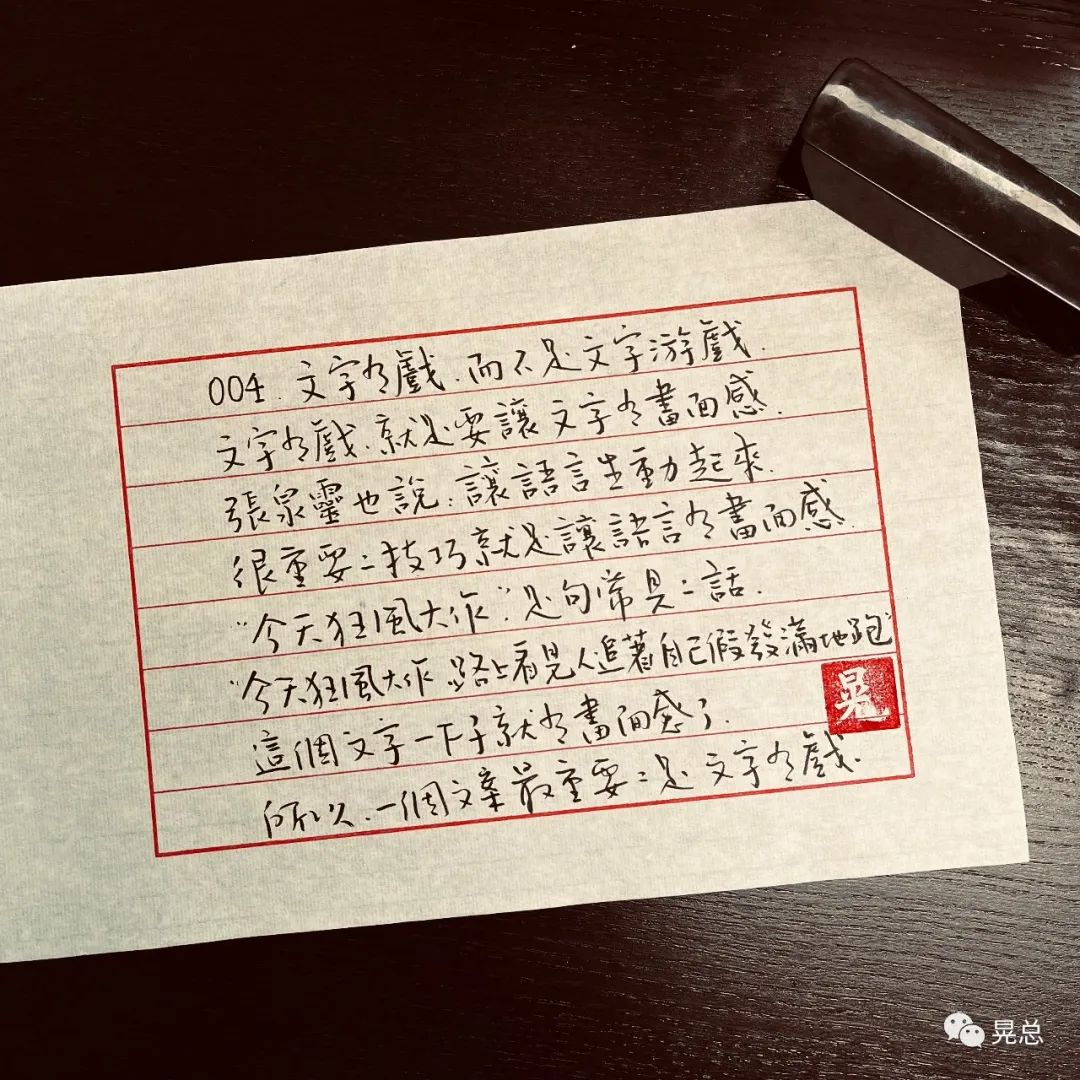 004.文字有戲.而不是文字游戲.
文字有戲.就是要讓文字有畫面感.
張泉靈也說:讓語言生動起來.
很重要的技巧就是讓語言有畫面感.
“今天狂風大作”是句常見的話.
“今天狂風大作 路上看見人追著自己假發滿地跑”
這個文字一下子就有畫面感了.
所以.一個文案最重要的是文字有戲.
晃
晃总